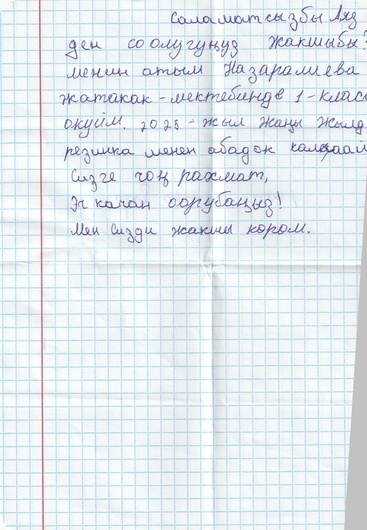 Саламатсызбы Аяз
ден соолугуңуз жакшыбы?
менин атым Назаралиева
жатакак-мектебинде 1-клас
окуйм. 2025-жыл жаңы жылд
резинка менен ободок калаай
Сизге чоң рахмат,
Эч качан оорубаңыз!
Мен Сизди жакшы кором.